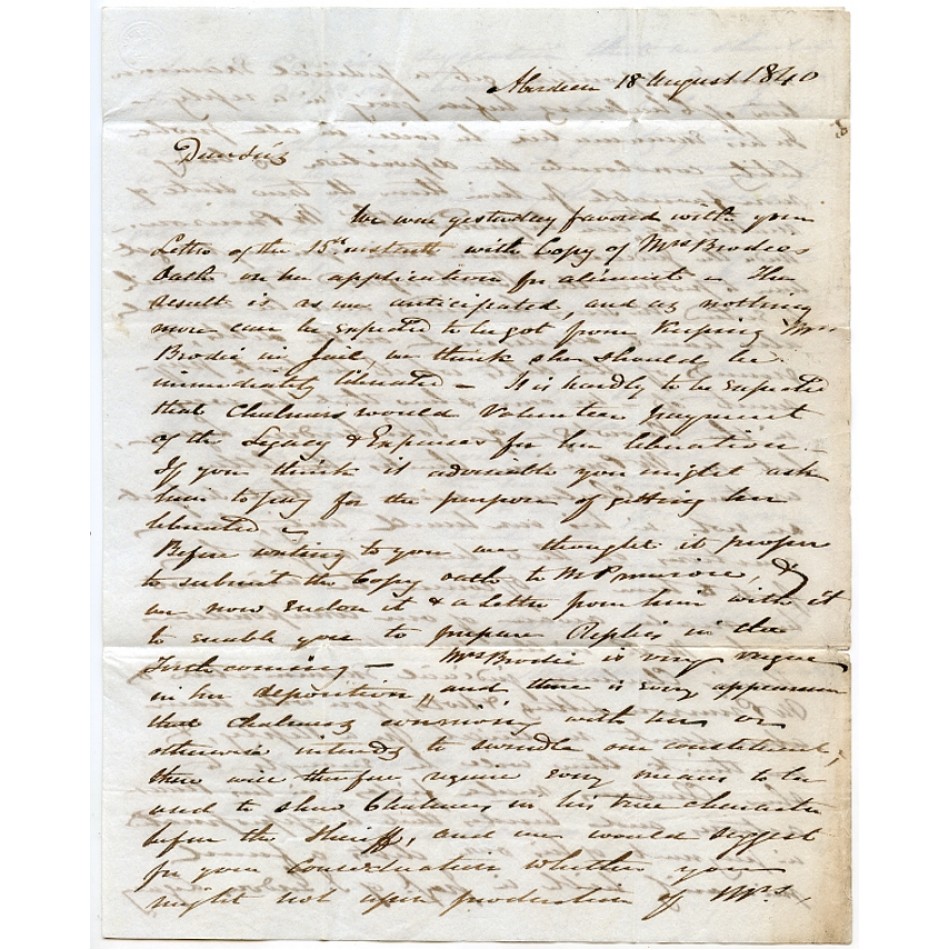 Aberdeen 18 August 1840
Dear Sirs
We was yesterday favored with your
Letter of the 15th instant with Copy of Mrs Brodies
Oath on her application for aliment - The
result is as we anticipated, and as nothing
more can be expected to be got from keeping Mrs
Brodie in Jail, we think she should be
immediately liberated - It is hardly to be expected
that Chalmers would Volunteer payment
of the Legacy & Expenses for her liberation -
If you think it adviseable you might ask
him to pay for the purpose of getting her
liberated -
Before writing to you we thought it proper
to submit the Copy oath to Mr Primrose, &
we now enclose it & a Letter from him with it
to enable you to prepare Replies in the
Forthcoming - Mrs Brodie is very vague
in her deposition, and there is every appearance
that Chalmers with her or
otherwise intends to swindle our constituent,
there will therefore require every means to be
used to shew Chalmers in his true character
before the Sheriff, and we would suggest
for your Consideration whether you
might not upon production of Mrs.